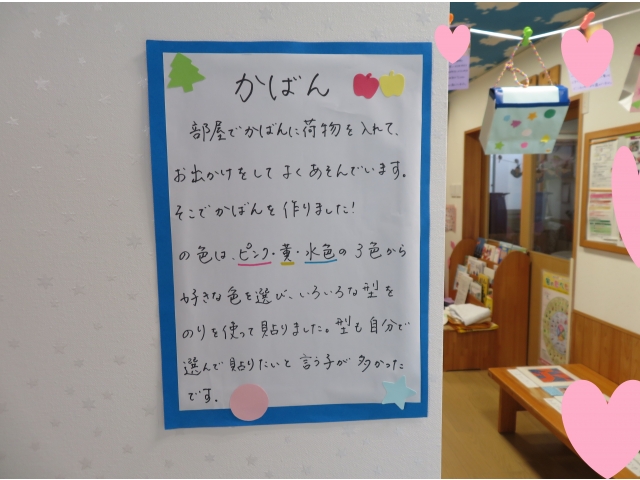 かばん
部屋でかばんに荷物を入れて、
お出かけをしてよくあそんでいます。
そこでかばんを作りました!
の色は、ピンク・黄・水色の3色から
好きな色を選び、いろいろな型を
のりを使って貼りました。型も自分で
選んで貼りたいと言う子が多かった
です。